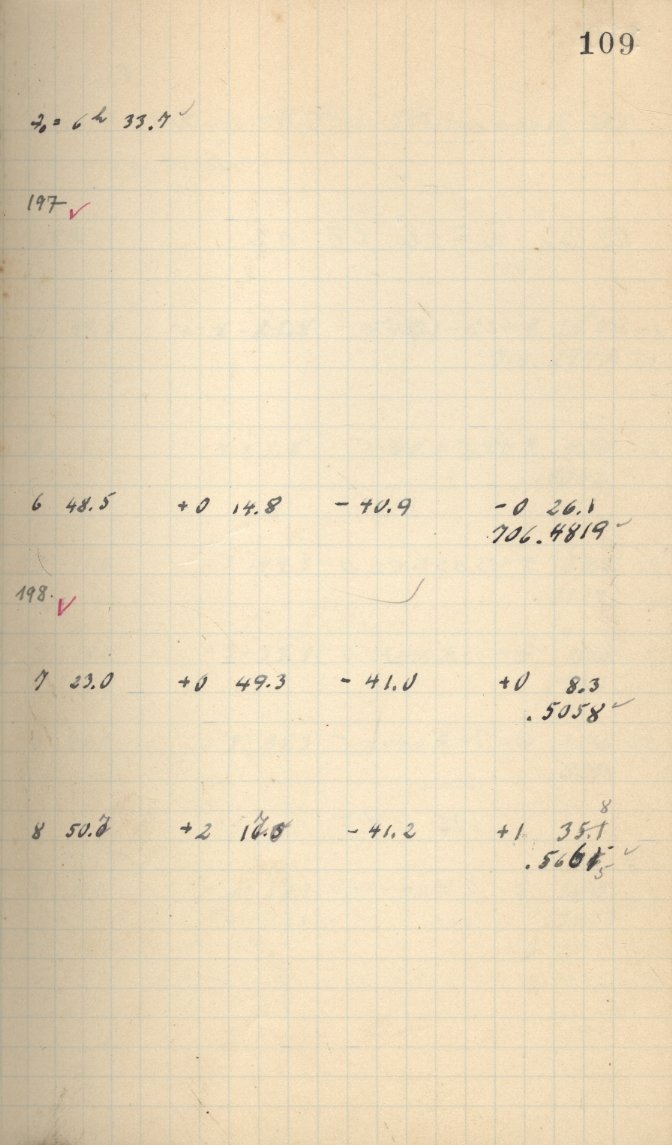 109
= 6 h 33.7 ✓
197 ✓
6 48.5 +0 14.8 - 40.9 - 0 26.1
706.4819 ✓
198. ✓
7 23.0 +0 49.3 - 41.0 +0 8.3
.5058 ✓
8
8 50.7 +2 17.0 - 41.2 +1 35.1